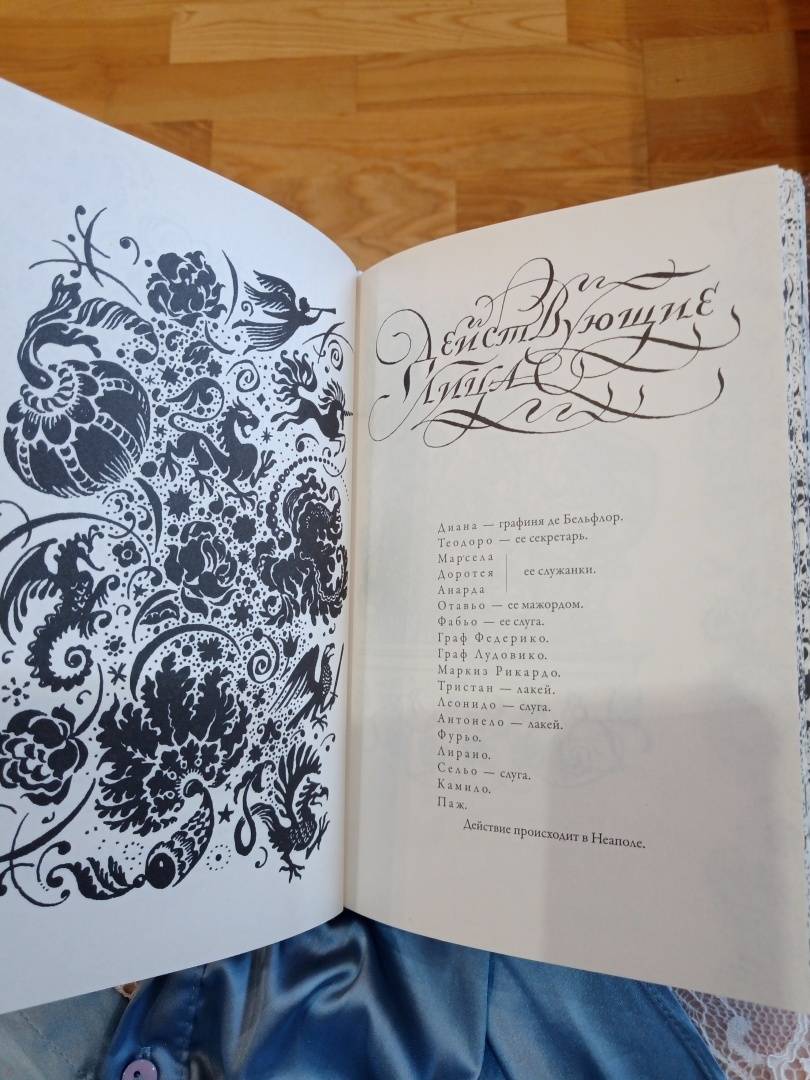 Действующие
Лица
Диана — графиня де Бельфлор.
Теодоро — ее секретарь.
Марсела
Доротея
ее служанки.
Анарда
Отавьо — ее мажордом.
Фабьо — ее слуга.
Граф Федерико.
Граф Лудовико.
Маркиз Рикардо.
Тристан — лакей.
Леонидо — слуга.
Антонело — лакей.
Фурьо.
Лирано.
Сельо — слуга.
Камило.
Паж.
Действие происходит в Неаполе.